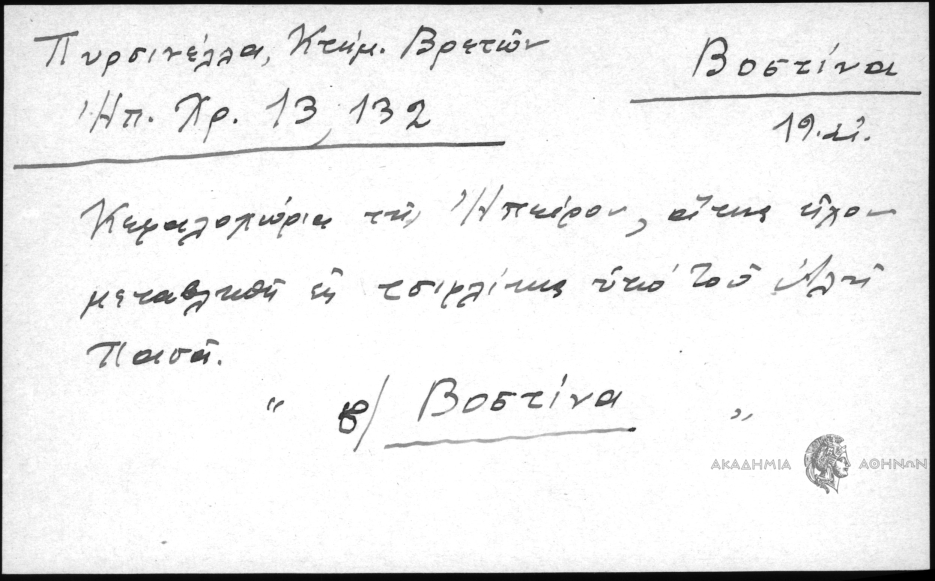 Πυρσινέλλα, Κτήμ. Βρετῶν
Ἠπ. Χρ. 13, 132
Βοστίνα
Κεφαλοχώρια τῆς Ἠπείρου, ἅτινα εἶχον
μεταβληθῆ εἰς τσιφλίκια ὑπό τοῦ Ἀλῆ
Πασᾶ.
" Βοστίνα "
ΑΚΑΔΗΜΙΑ ΑΘΗΝΩΝ